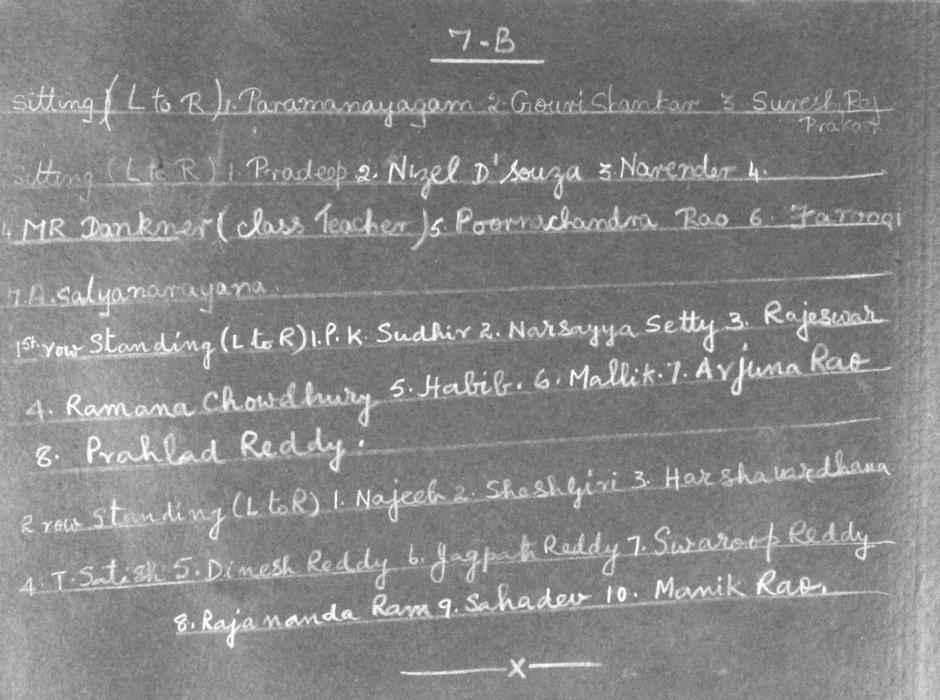 7-B
Sitting (L to R) 1. Paramanayagam 2. Gouri Shankar 3 Suresh Raj
Prakash
Sitting (L to R) 1. Pradeep 2. Nizel D'Souza 3. Narender 4.
4. MR Dankner (class Teacher) 5. Poornachandra Rao 6. Farooqi
7. A. Satyanarayana.
1st row Standing (L to R) 1. P. K. Sudhir 2. Narsayya Setty 3. Rajeswar
4. Ramana Chowdhury 5. Habib. 6. Mallik. 7. Arjuna Rao
8. Prahlad Reddy.
2 row Standing (L to R) 1. Najeeb 2. Sheshgiri 3. Harshavardhana
4. T. Satish 5. Dinesh Reddy 6. Jagpath Reddy 7. Swaroop Reddy
8. Rajananda Ram 9. Sahadev 10. Manik Rao.
x